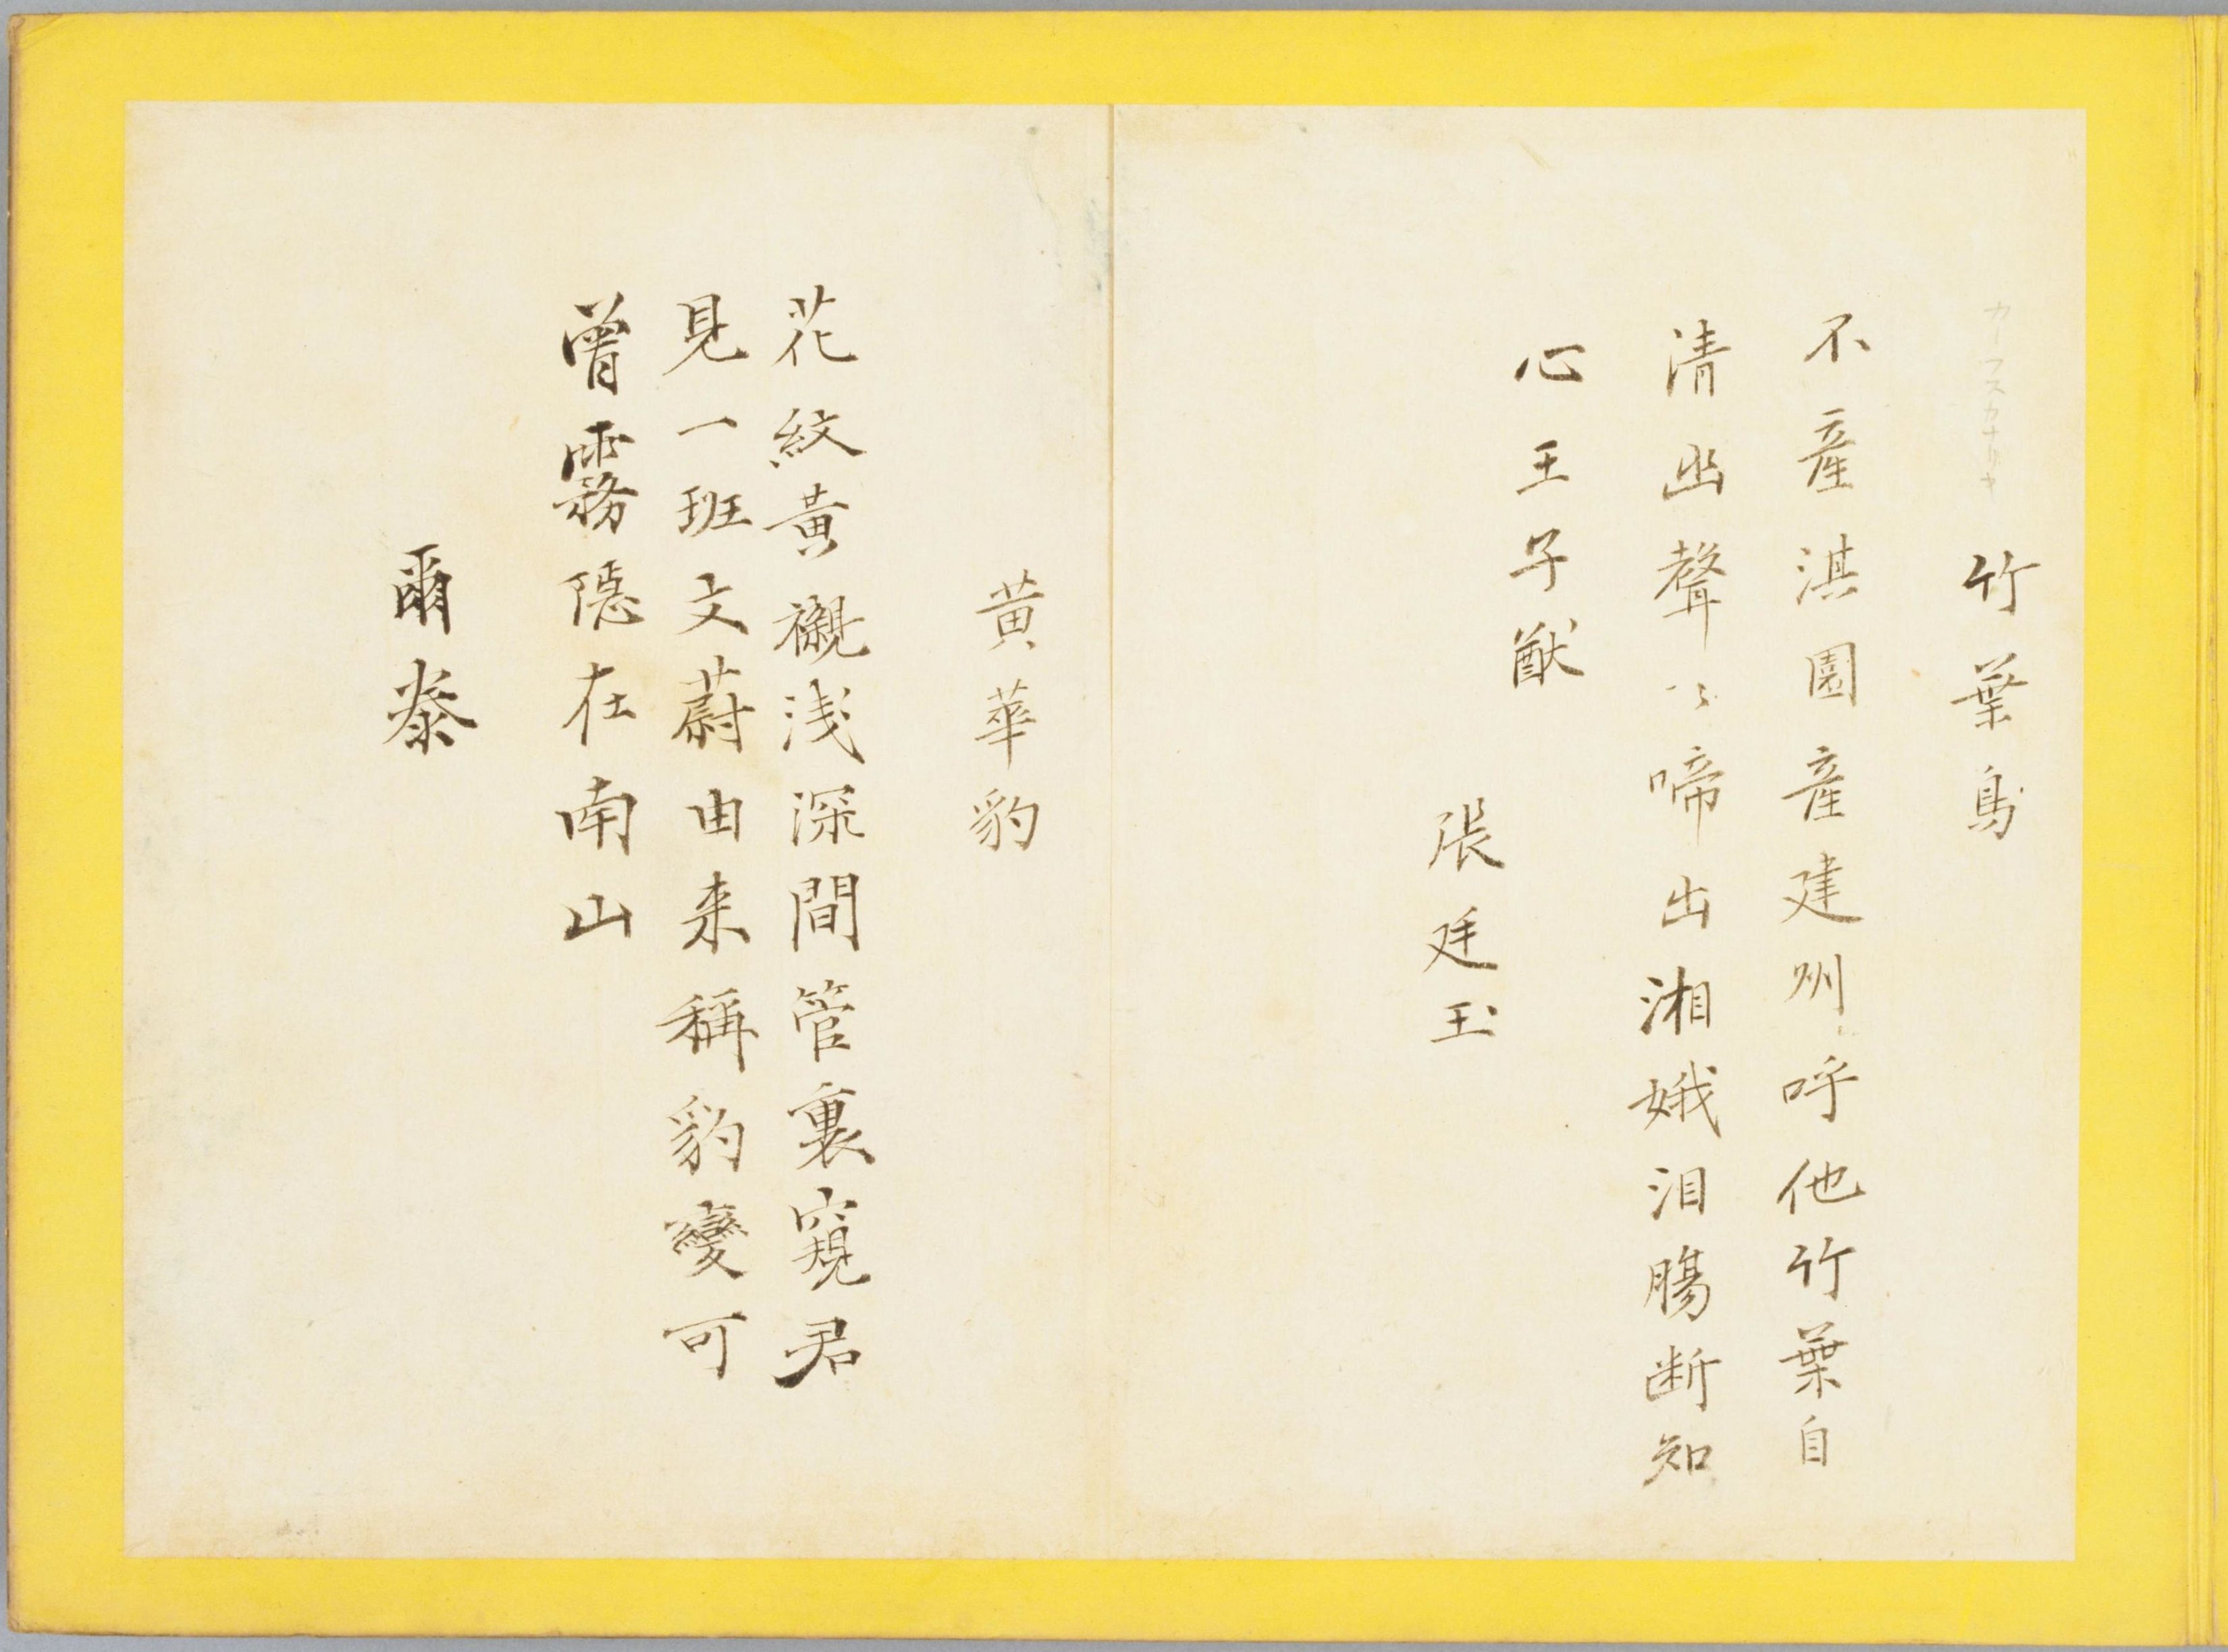 竹葉鳥
不產淇園產建州呼他竹葉自
清幽聲〻啼出湘娥泪腸断知
心王子猷
張廷玉
黄華豹
花紋黄襯浅深間管裏窺君
見一班文蔚由来稱豹變可
曾霧隠在南山
爾泰